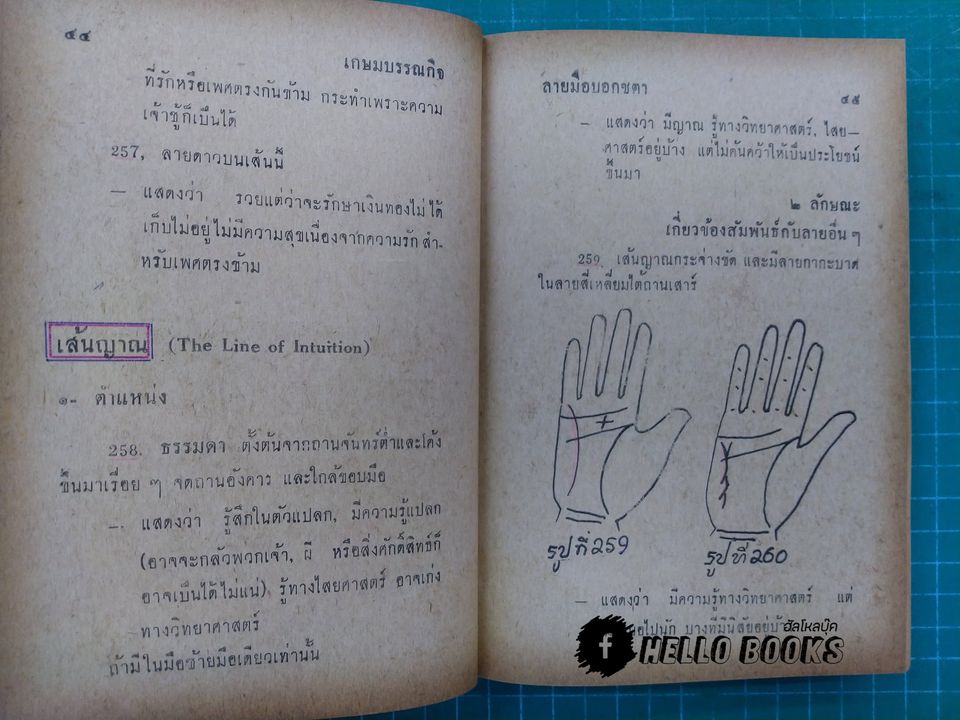 ๔๔
เกษมบรรณกิจ
ที่รักหรือเพศตรงกันข้าม กระทำเพราะความ
เจ้าชู้ก็เป็นได้
257, ลายดาวบนเส้นนี้
— แสดงว่า รวยแต่ว่าจะรักษาเงินทองไม่ได้
เก็บไม่อยู่ไม่มีความสุขเนื่องจากความรัก สำ-
หรับเพศตรงข้าม
เส้นญาณ (The Line of Intuition)
๑- ตำแหน่ง
258. ธรรมดา ตั้งต้นจากถานจันทร์ต่ำและโค้ง
ขึ้นมาเรื่อย ๆ จดถานอังคาร และใกล้ขอบมือ
— แสดงว่า รู้สึกในตัวแปลก, มีความรู้แปลก
(อาจจะกลัวพวกเจ้า, ผี หรือสิ่งศักดิ์สิทธิ์ก็
อาจเป็นได้ไม่แน่) รู้ทางไสยศาสตร์ อาจเก่ง
ทางวิทยาศาสตร์
ถ้ามีในมือซ้ายมือเดียวเท่านั้น
ลายมือบอกชตา
๔๕
— แสดงว่า มีญาณ รู้ทางวิทยาศาสตร์, ไสย—
ศาสตร์อยู่บ้าง แต่ไม่ค้นคว้าให้เป็นประโยชน์
ขึ้นมา
๒ ลักษณะ
เกี่ยวข้องสัมพันธ์กับลายอื่น ๆ
259. เส้นญาณกระจ่างชัด และมีลายกากะบาด
ในลายสี่เหลี่ยมใต้ถานเสาร์
รูปที่ 259
รูปที่ 260
— แสดงว่า มีความรู้ทางวิทยาศาสตร์ แต่
ไปนัก บางทีมีนิสัยอยู่
f
ฮัลโหลบุ๊ค
HELLO BOOKS